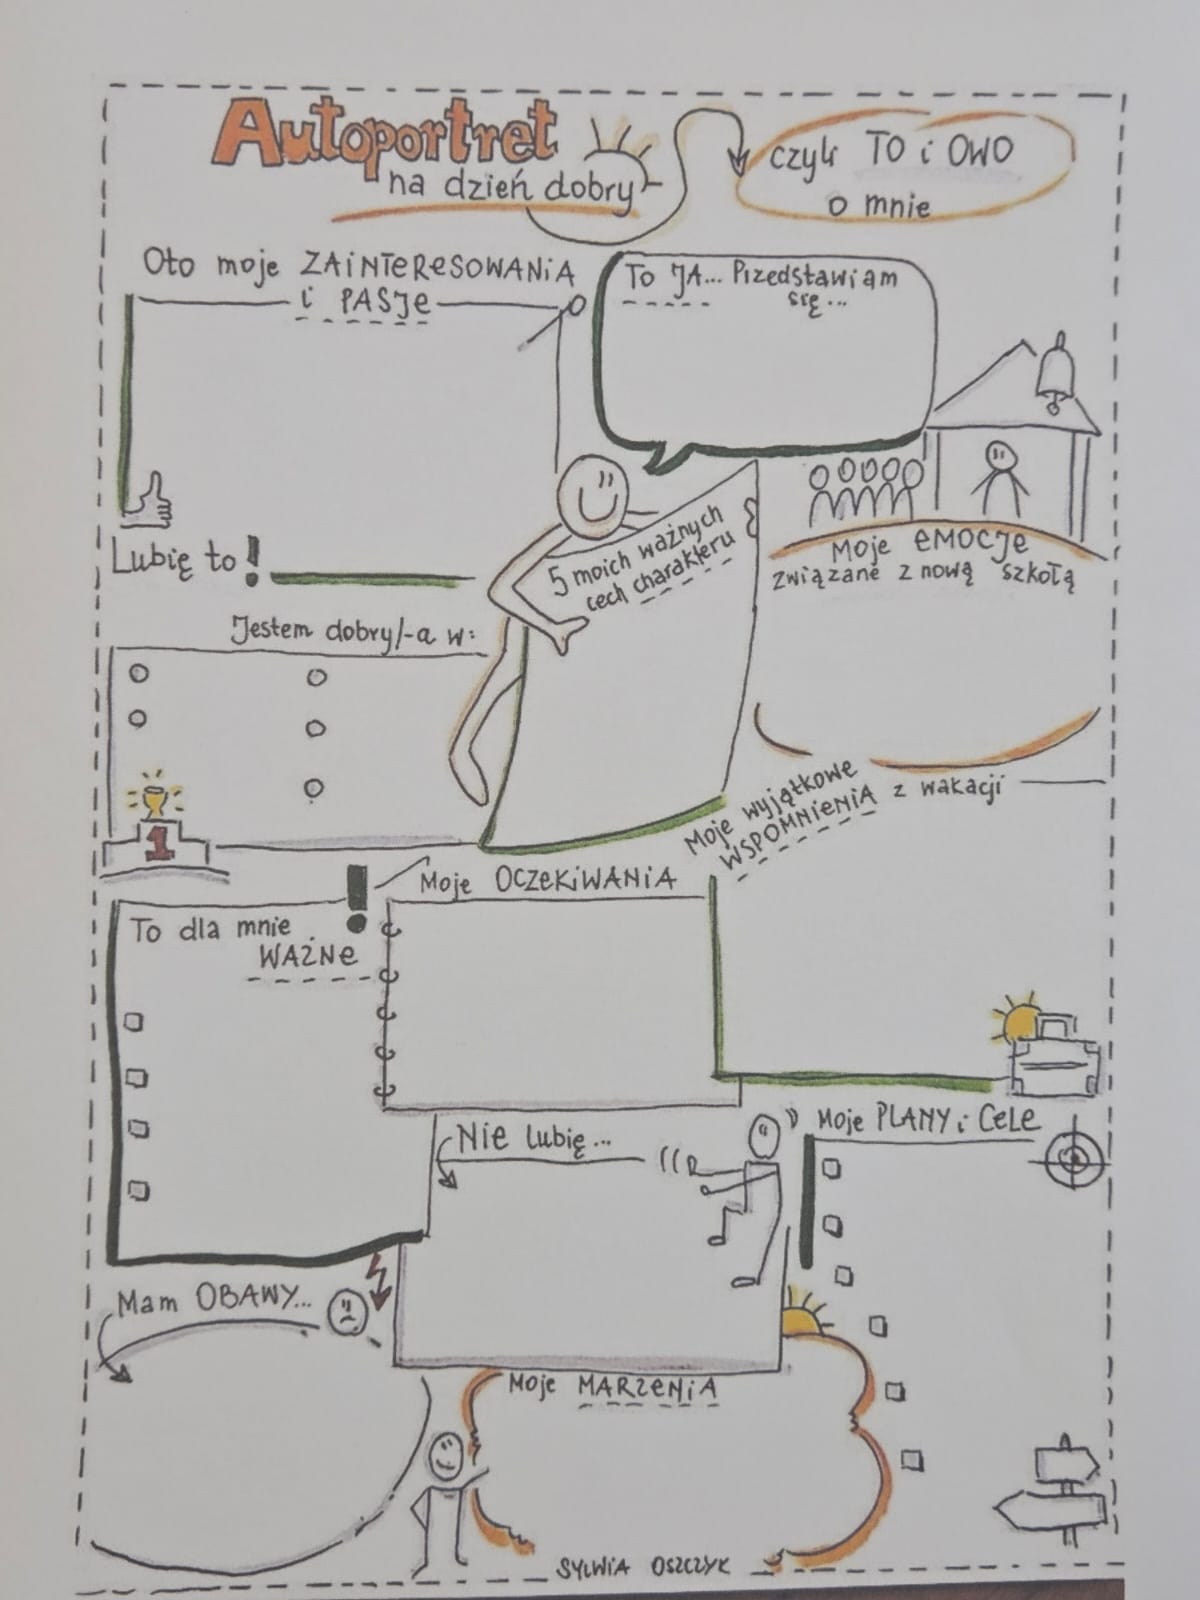 Autoportret
na dzień dobry
czyli TO i OWO
o mnie
Oto moje ZAINTERESOWANIA
i PASJE
To JA... Przedstawiam
się...
Lubię to!
5 moich ważnych
cech charakteru
Moje EMOCJE
związane z nową szkołą
Jestem dobry/-a w:
1
Moje wyjątkowe
WSPOMNIENIA z wakacji
To dla mnie
WAŻNE !
Moje OCZEKIWANIA
Nie lubię...
Moje PLANY i CELE
Mam OBAWY...
Moje MARZENIA
SYLWIA OSZCZYK